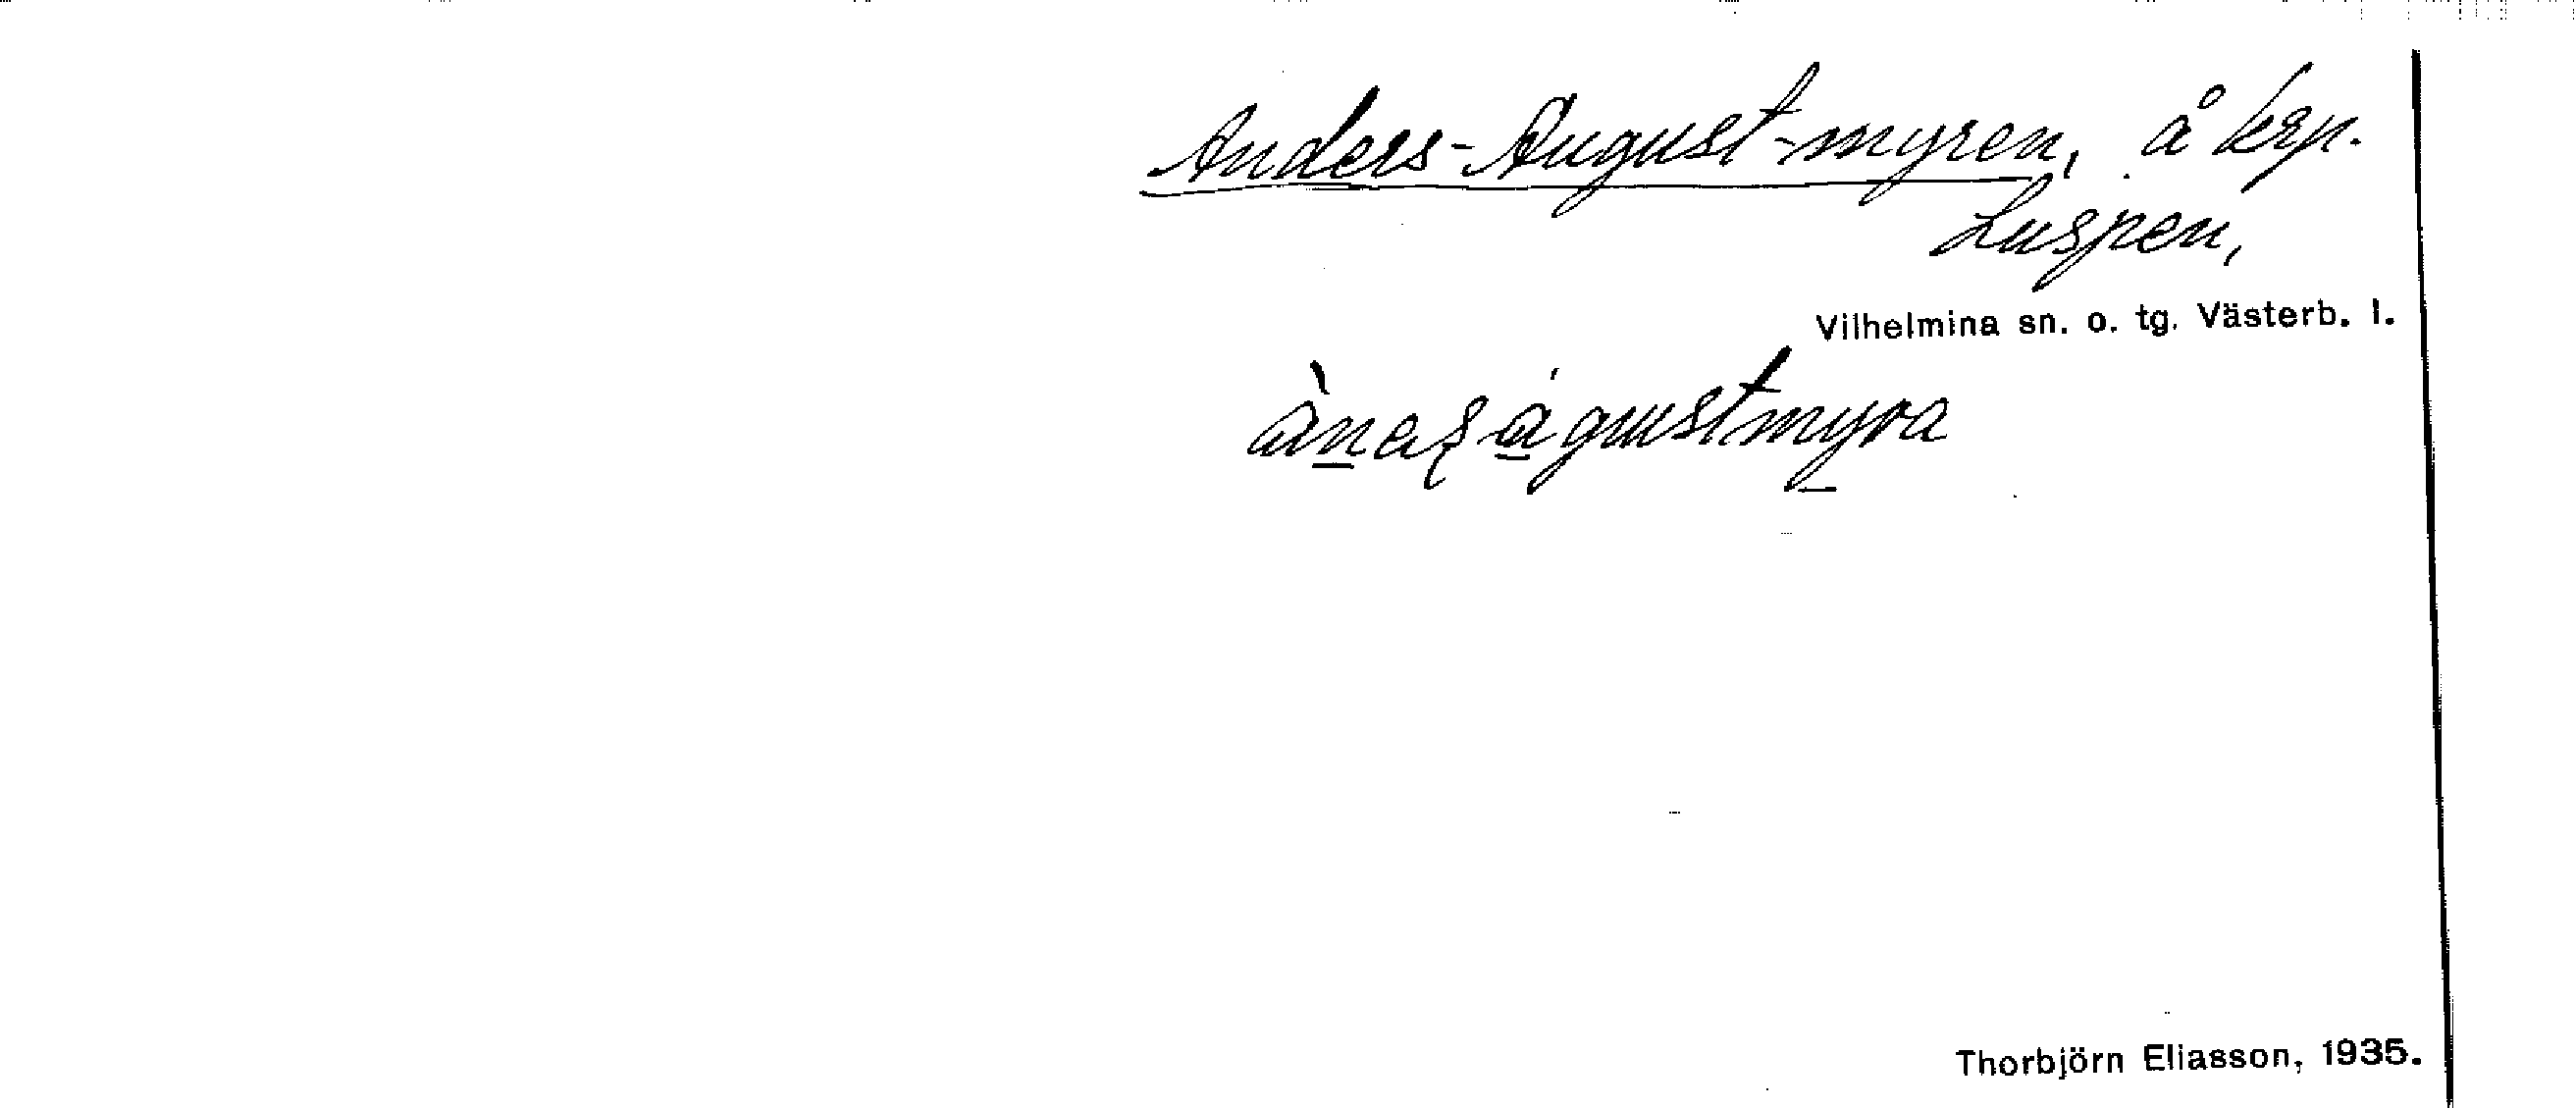 Anders-August-myren, å krp.
Luspen,
Vilhelmina sn. o. tg. Västerb. l.
ànaʂ águstmyra
Thorbjörn Eliasson, 1935.